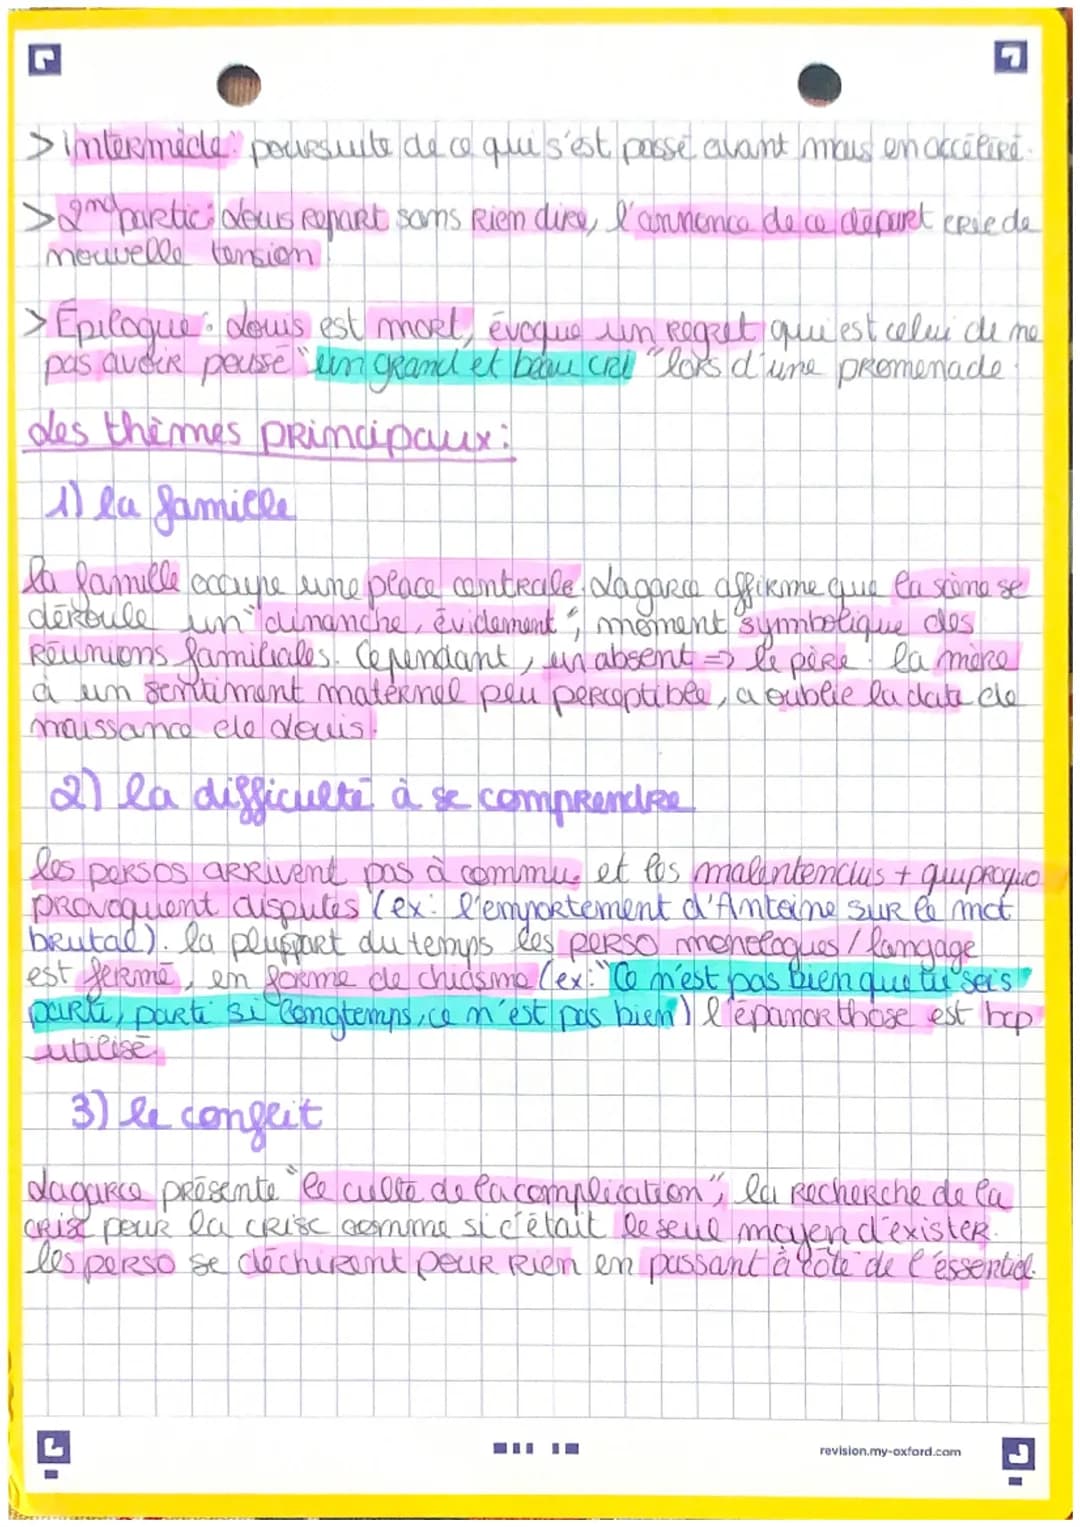 > Intermède : poursuite de ce qui s'est passé avant mais en accéléré.
> 2nd partie : Louis repart sans rien dire, l'annonce de ce départ crée de
nouvelle tension
> Épilogue : Louis est mort, évoque un regret qui est celui de ne
pas avoir poussé "un grand et beau cri" lors d'une promenade.
Les thèmes principaux :
1) la famille
la famille occupe une place centrale. Lagarce affirme que la scène se
déroule un "dimanche, évidement", moment symbolique des
Réunions familiales. Cependant, un absent => le père. la mère
à un sentiment maternel peu perceptible, a oublié la date de
naissance de Louis.
2) la difficulté à se comprendre
les persos arrivent pas à commu. et les malentendus + quiproquo
provoquent disputes (ex: l'emportement d'Antoine sur le mot
brutal). la pluspart du temps les perso monologues / langage
est fermé, en forme de chiasme (ex: "Ce n'est pas bien que tu sois
parti, parti si longtemps, ce n'est pas bien") l'épanorthose est bcp
utilisé.
3) le conflit
Lagarce présente "le culte de la complication", la recherche de la
crise pour la crise comme si c'était le seul moyen d'exister.
les perso se déchirent pour rien en passant à côté de l'éssentiel.
revision.my-oxford.com